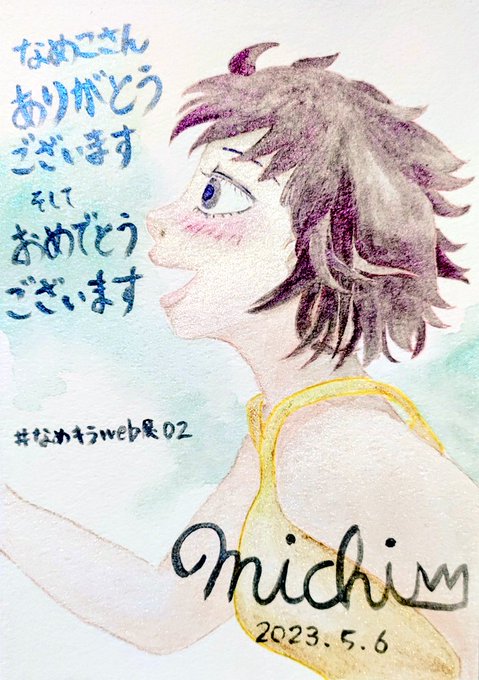 なめこさん
ありがとう
ございます
そして
おめでとう
ございます
#なめキラweb展02
michi
2023.5.6